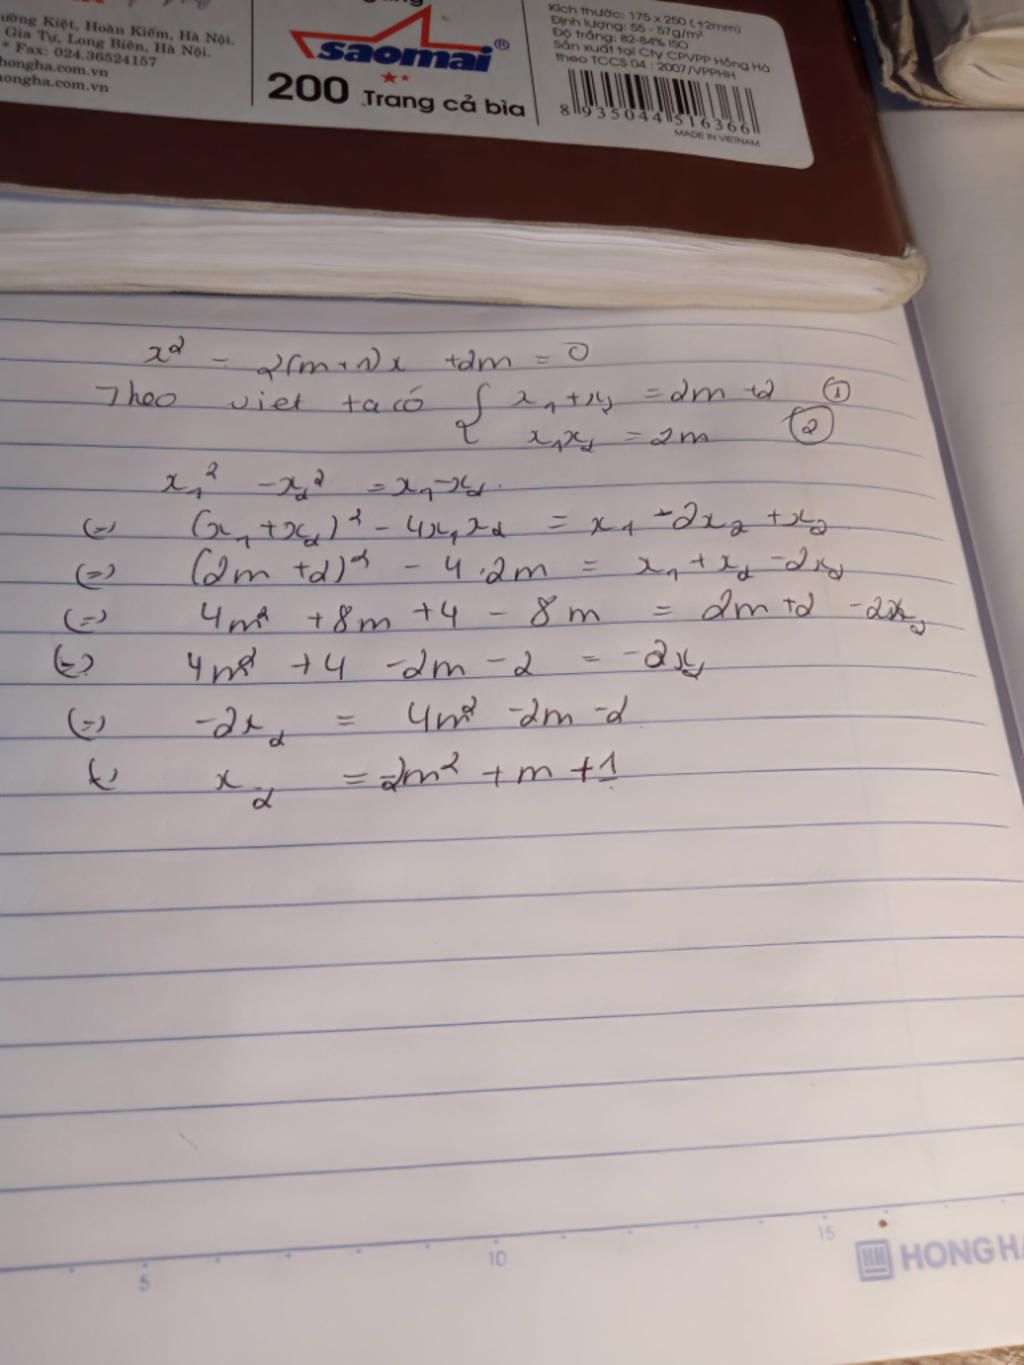 ường Kiệt, Hoàn Kiếm, Hà Nội.
Gia Tự, Long Biên, Hà Nội.
* Fax: 024.36524157
hongha.com.vn
hongha.com.vn
saomai®
200 Trang cả bìa
Kích thước: 175 x 250 (±2mm)
Định lượng: 55 - 57g/m²
Độ trắng: 82-84% ISO
Sản xuất tại Cty CPVPP Hồng Hà
theo TCCS 04 : 2007/VPPHH
8 935044 516366
MADE IN VIETNAM
x² - 2(m+1)x +2m = 0
Theo viet ta có { x₁+x₂ = 2m +2 ①
x₁x₂ = 2m ②
x₁² - x₂² = x₁-x₂.
(=) (x₁+x₂)² - 4x₁x₂ = x₁ - 2x₂ + x₂
(=) (2m +2)² - 4.2m = x₁ + x₂ - 2x₂
(=) 4m² + 8m + 4 - 8m = 2m+2 - 2x₂
(=) 4m² + 4 - 2m - 2 = -2x₂
(=) -2x₂ = 4m² - 2m - 2
x₂ = -2m² + m + 1
5 10 15 HH HONG HA